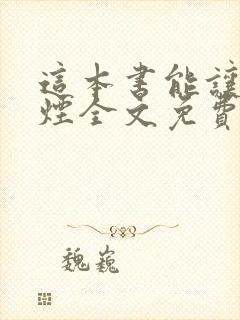 這本書能讓
煙全文免費
魏巍